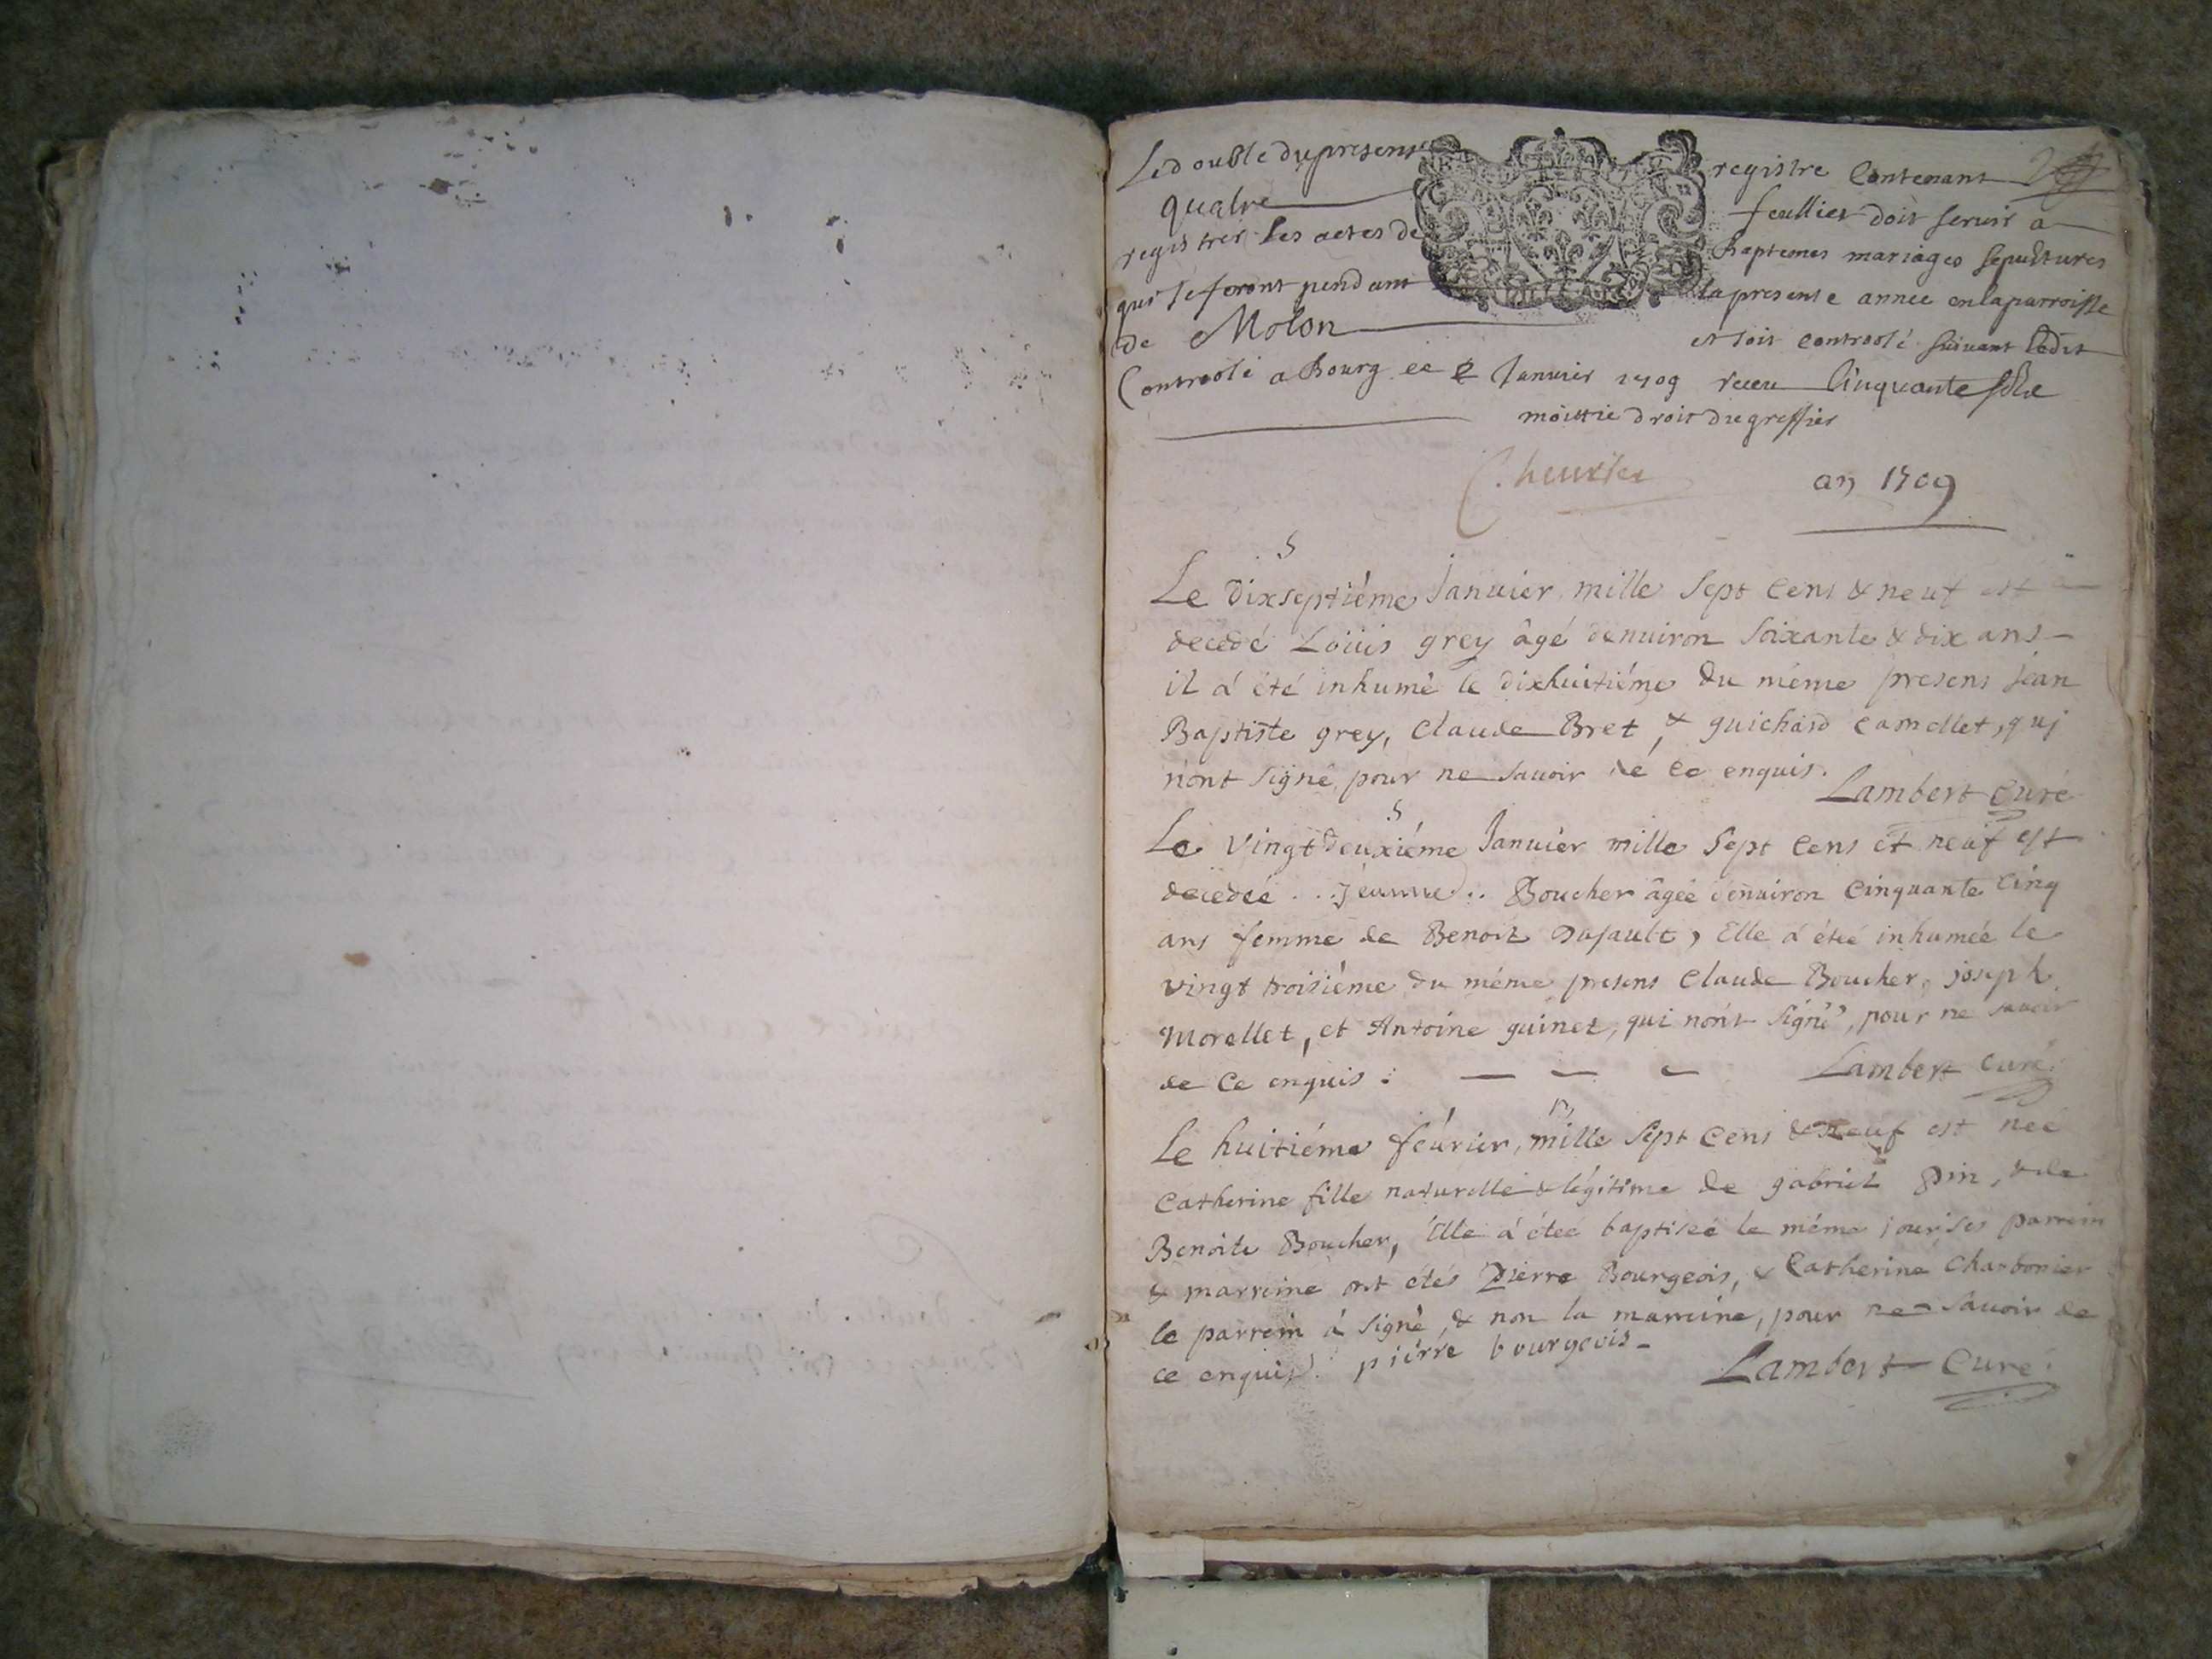 Le double du present registre Contenant
quatre feulliet doit servir a
registrer les actes de Baptemes mariages sepultures
qui se feront pendant la presente année en la parroisse
de Molon et soit controolé suivant ledit
Controolé a Bourg ce 2 Januier 1709 receu Cinquante sols
moittie droit du greffier
Cheurier an 1709
S
Le dixseptiéme Januier mille Sept Cens & neuf est
decedé Loüis grey âgé denuiron soixante & dix ans
il á été inhumé le dixhuitiéme du méme presens jean
Baptiste grey, Claude Bret, & guichard Camellet, quj
n'ont signé, pour ne sauoir de ce enquis.
Lambert Curé
S
Le Vingtdeuxiéme Januier mille Sept Cens et neuf est
decedée .. jeanne .. Boucher âgée denuiron Cinquante Cinq
ans femme de Benoit Dufault, Elle á étée inhumée le
vingt troisiéme du méme presens Claude Boucher, joseph
Morellet, et Antoine guinet, qui n'ont Signé, pour ne sauoir
de Ce enquis : Lambert Curé.
B
Le huitiéme féurier, mille Sept Cens & neuf est née
Catherine fille naturelle & légitime de gabriel pin, & de
Benoite Boucher, Elle á étée baptisée le méme jour ses parrein
& marreine ont étés Pierre Bourgeois, & Catherine Charbonier
le parrein á signé, & non la marreine, pour ne sauoir de
ce enquis. piérre bourgeois
Lambert Curé.